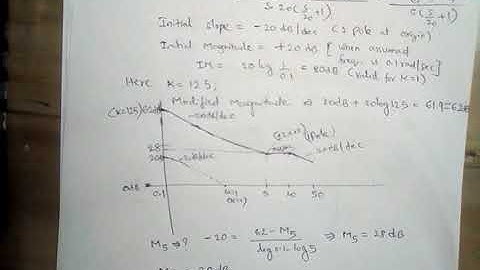 S × 20(S/20 +1)
S(S/20 +1)
Initial slope = -20 dB/dec (∵ pole at origin)
Initial Magnitude = +20 dB [when assumed
freq. is 0.1 rad/sec]
IM = 20 log 1/0.1 = 20dB (valid for K=1)
Here K = 125,
Modified Magnitude ⇒ 20dB + 20log125 = 61.9≈62dB
(K=125) 62dB
-20dB/dec
(pole)
28
20
-20dB/dec
-20dB/dec
0dB
0.1
5 10 50
M5 ⇒ ? -20 = 62 - M5 / log0.1 - log5 ⇒ M5 = 28dB